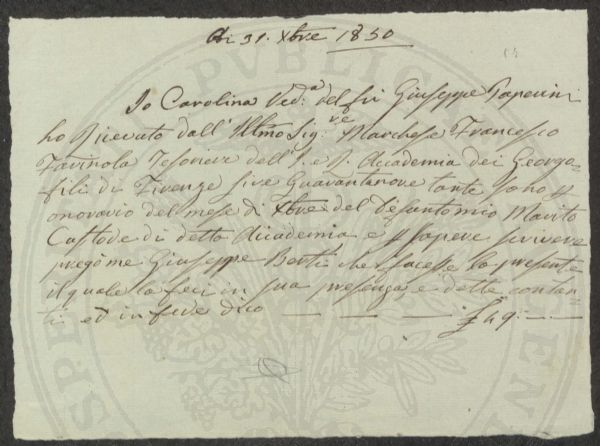 Adi 31. Xbre 1850
Io Carolina Ved:a del fu Giuseppe Paperini
ho Ricevuto dall'Illmo Sig:re Marchese Francesco
Farinola Tesoriere dell'I. e R. Accademia dei Georgo-
fili di Firenze Lire Quarantanove tante sono p
onorario del mese di Xbre del Defunto mio Marito
Custode di detta Accademia e p sapere scrivere
pregò me Giuseppe Berti che facesse la presente
il quale la feci in sua presenza, e dette contan-
ti ed in fede dico — — — £ 49:—
PVBLICA